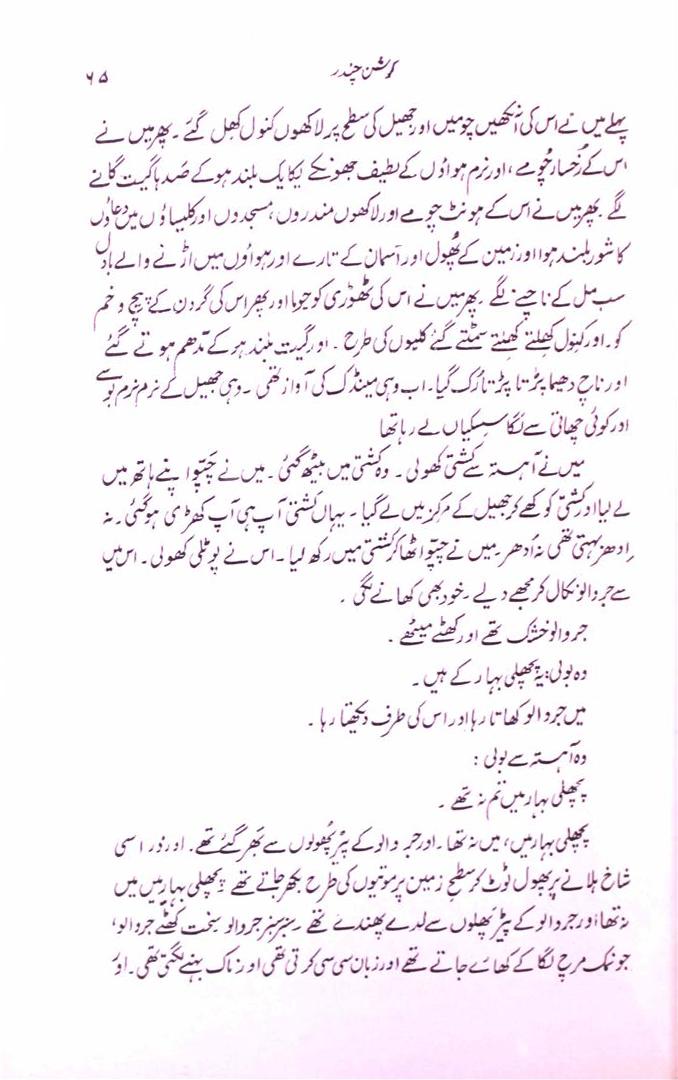 کرشن چندر ۶۵
پہلے میں نے اس کی آنکھیں چومیں اور جھیل کی سطح پر لاکھوں کنول کھل گئے۔ پھر میں نے
اس کے رُخسار چُومے، اور نرم ہواؤں کے لطیف جھونکے یکایک بلند ہو کے صَدہا گیت گانے
لگے۔ پھر میں نے اس کے ہونٹ چومے اور لاکھوں مندروں، مسجدوں اور کلیساؤں میں دعاؤں
کا شور بلند ہوا اور زمین کے پھُول اور آسمان کے تارے اور ہواؤں میں اڑنے والے بادل
سب مل کے ناچنے لگے۔ پھر میں نے اس کی ٹھوڑی کو چوما اور پھر اس کی گردن کے پیچ و خم
کو۔ اور کنول کھلتے کھلتے سمٹتے گئے کلیوں کی طرح۔ اور گیت بلند ہو کے مدّھم ہوتے گئے
اور ناچ دھیما پڑتا پڑتا رُک گیا۔ اب وہی مینڈک کی آواز تھی۔ وہی جھیل کے نرم نرم بوسے
اور کوئی چھاتی سے لگا سسکیاں لے رہا تھا
میں نے آہستہ سے کشتی کھولی۔ وہ کشتی میں بیٹھ گئی۔ میں نے چپّو اپنے ہاتھ میں
لے لیا اور کشتی کو کھے کر جھیل کے مرکز میں لے گیا۔ یہاں کشتی آپ ہی آپ کھڑی ہو گئی۔ نہ
اِدھر بہتی تھی نہ اُدھر۔ میں نے چپّو اٹھا کر کشتی میں رکھ لیا۔ اس نے پوٹلی کھولی۔ اس میں
سے جردالو نکال کر مجھے دیے۔ خود بھی کھانے لگی۔
جردالو خشک تھے اور کھٹے میٹھے۔
وہ بولی: یہ پچھلی بہار کے ہیں۔
میں جردالو کھاتا رہا اور اس کی طرف دیکھتا رہا۔
وہ آہستہ سے بولی:
پچھلی بہار میں تم نہ تھے۔
پچھلی بہار میں، میں نہ تھا۔ اور جردالو کے پیڑ پھُولوں سے بھَر گئے تھے۔ اور ذرا سی
شاخ ہلانے پر پھول ٹوٹ کر سطح زمین پر موتیوں کی طرح بکھر جاتے تھے۔ پچھلی بہار میں میں
نہ تھا اور جردالو کے پیڑ پھلوں سے لدے پھندے تھے۔ سبز سبز جردالو سخت کھٹے جردالو،
جو نمک مرچ لگا کے کھائے جاتے تھے اور زبان سی سی کرتی تھی اور ناک بہنے لگتی تھی۔ اور